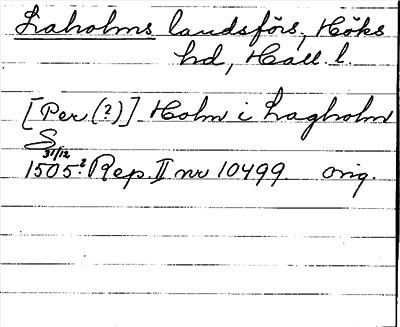 Laholms landsförs, Höks
hd, Hall. l.
[Per (?)] Holm i Lagholm
S
31/12
1505? Rep. II nr 10499. orig.